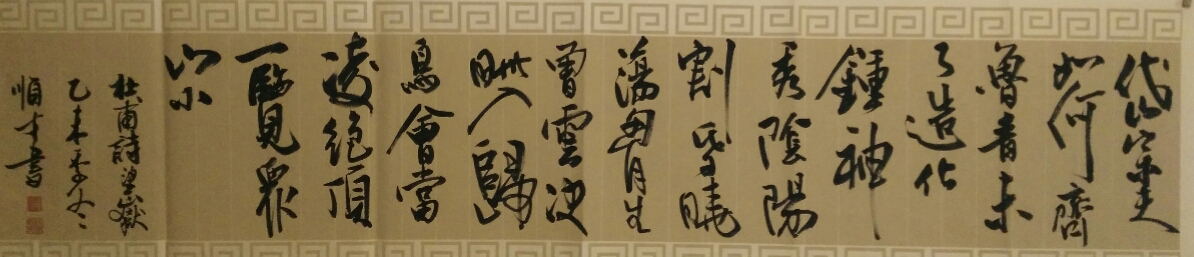 岱宗夫
如何齊
魯青未
了造化
鍾神
秀陰陽
割昏曉
蕩胷生
曾雲決
眦入歸
鳥會當
凌絕頂
一覽眾
山小
杜甫詩望嶽
乙未季冬
順才書